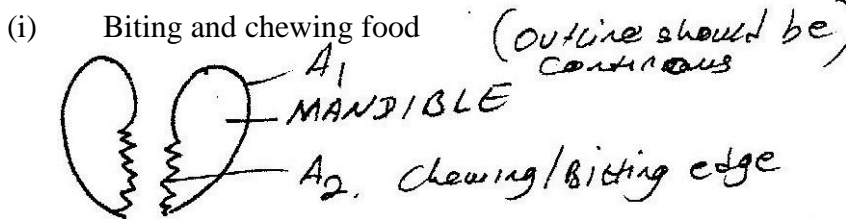 (i) Biting and chewing food
(Outline should be
continous)
A1
MANDIBLE
A2. Chewing/Bitting edge